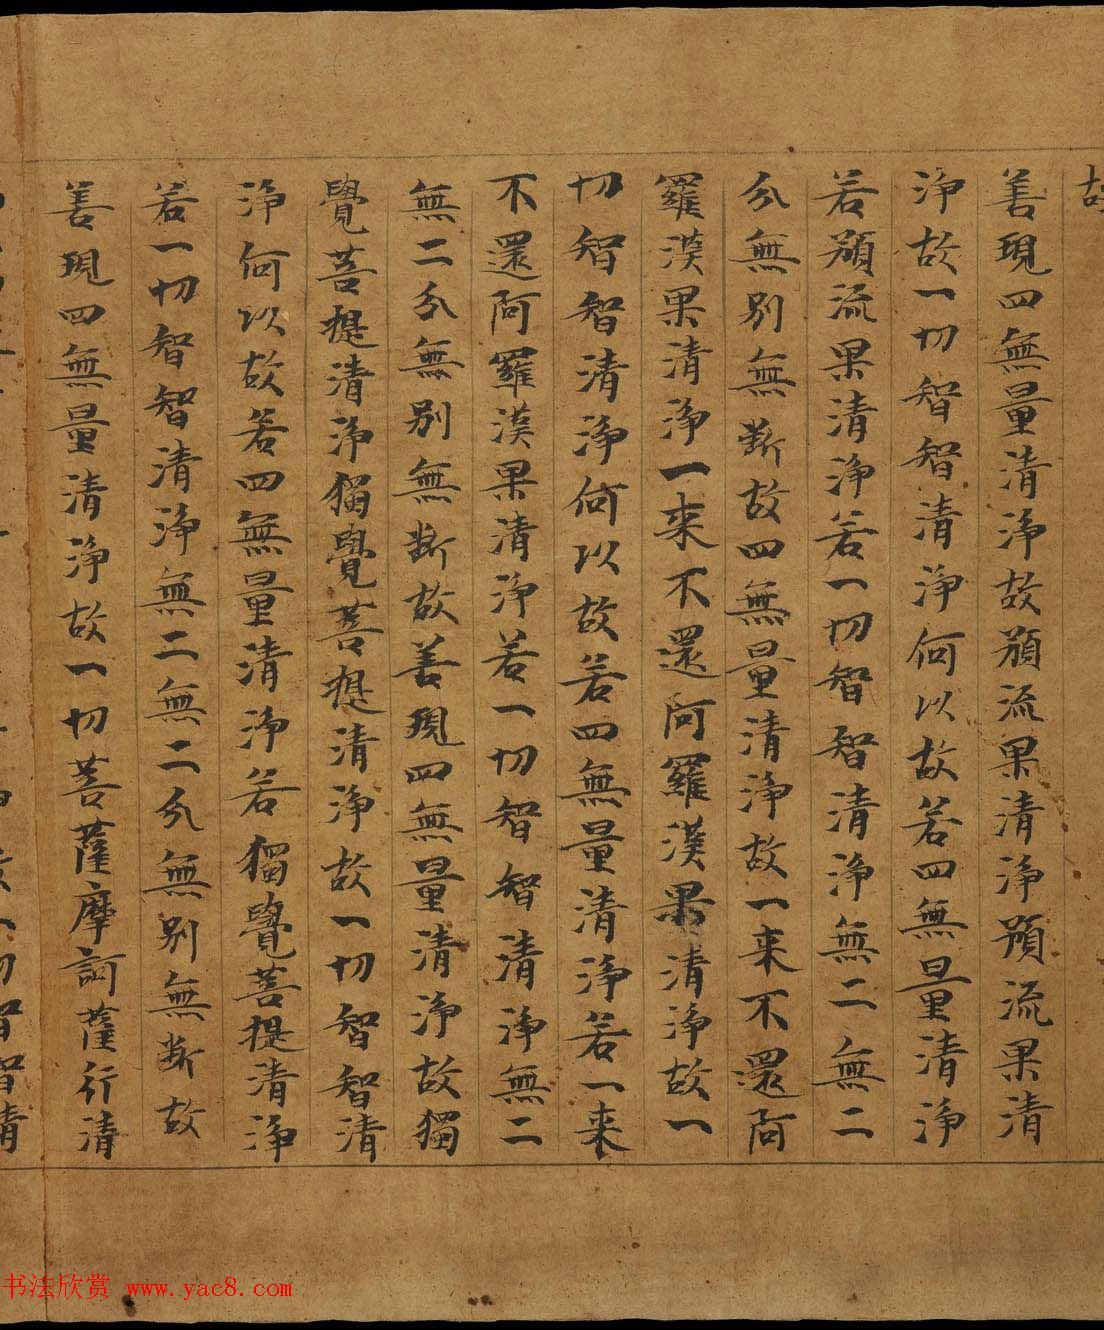 故
善現四無量清淨故預流果清淨預流果清
淨故一切智智清淨何以故若四無量清淨
若預流果清淨若一切智智清淨無二無二
分無別無斷故四無量清淨故一来不還阿
羅漢果清淨一来不還阿羅漢果清淨故一
切智智清淨何以故若四無量清淨若一来
不還阿羅漢果清淨若一切智智清淨無二
無二分無別無斷故善現四無量清淨故獨
覺菩提清淨獨覺菩提清淨故一切智智清
淨何以故若四無量清淨若獨覺菩提清淨
若一切智智清淨無二無二分無別無斷故
善現四無量清淨故一切菩薩摩訶薩行清
切智智清
书法欣赏 www.yac8.com